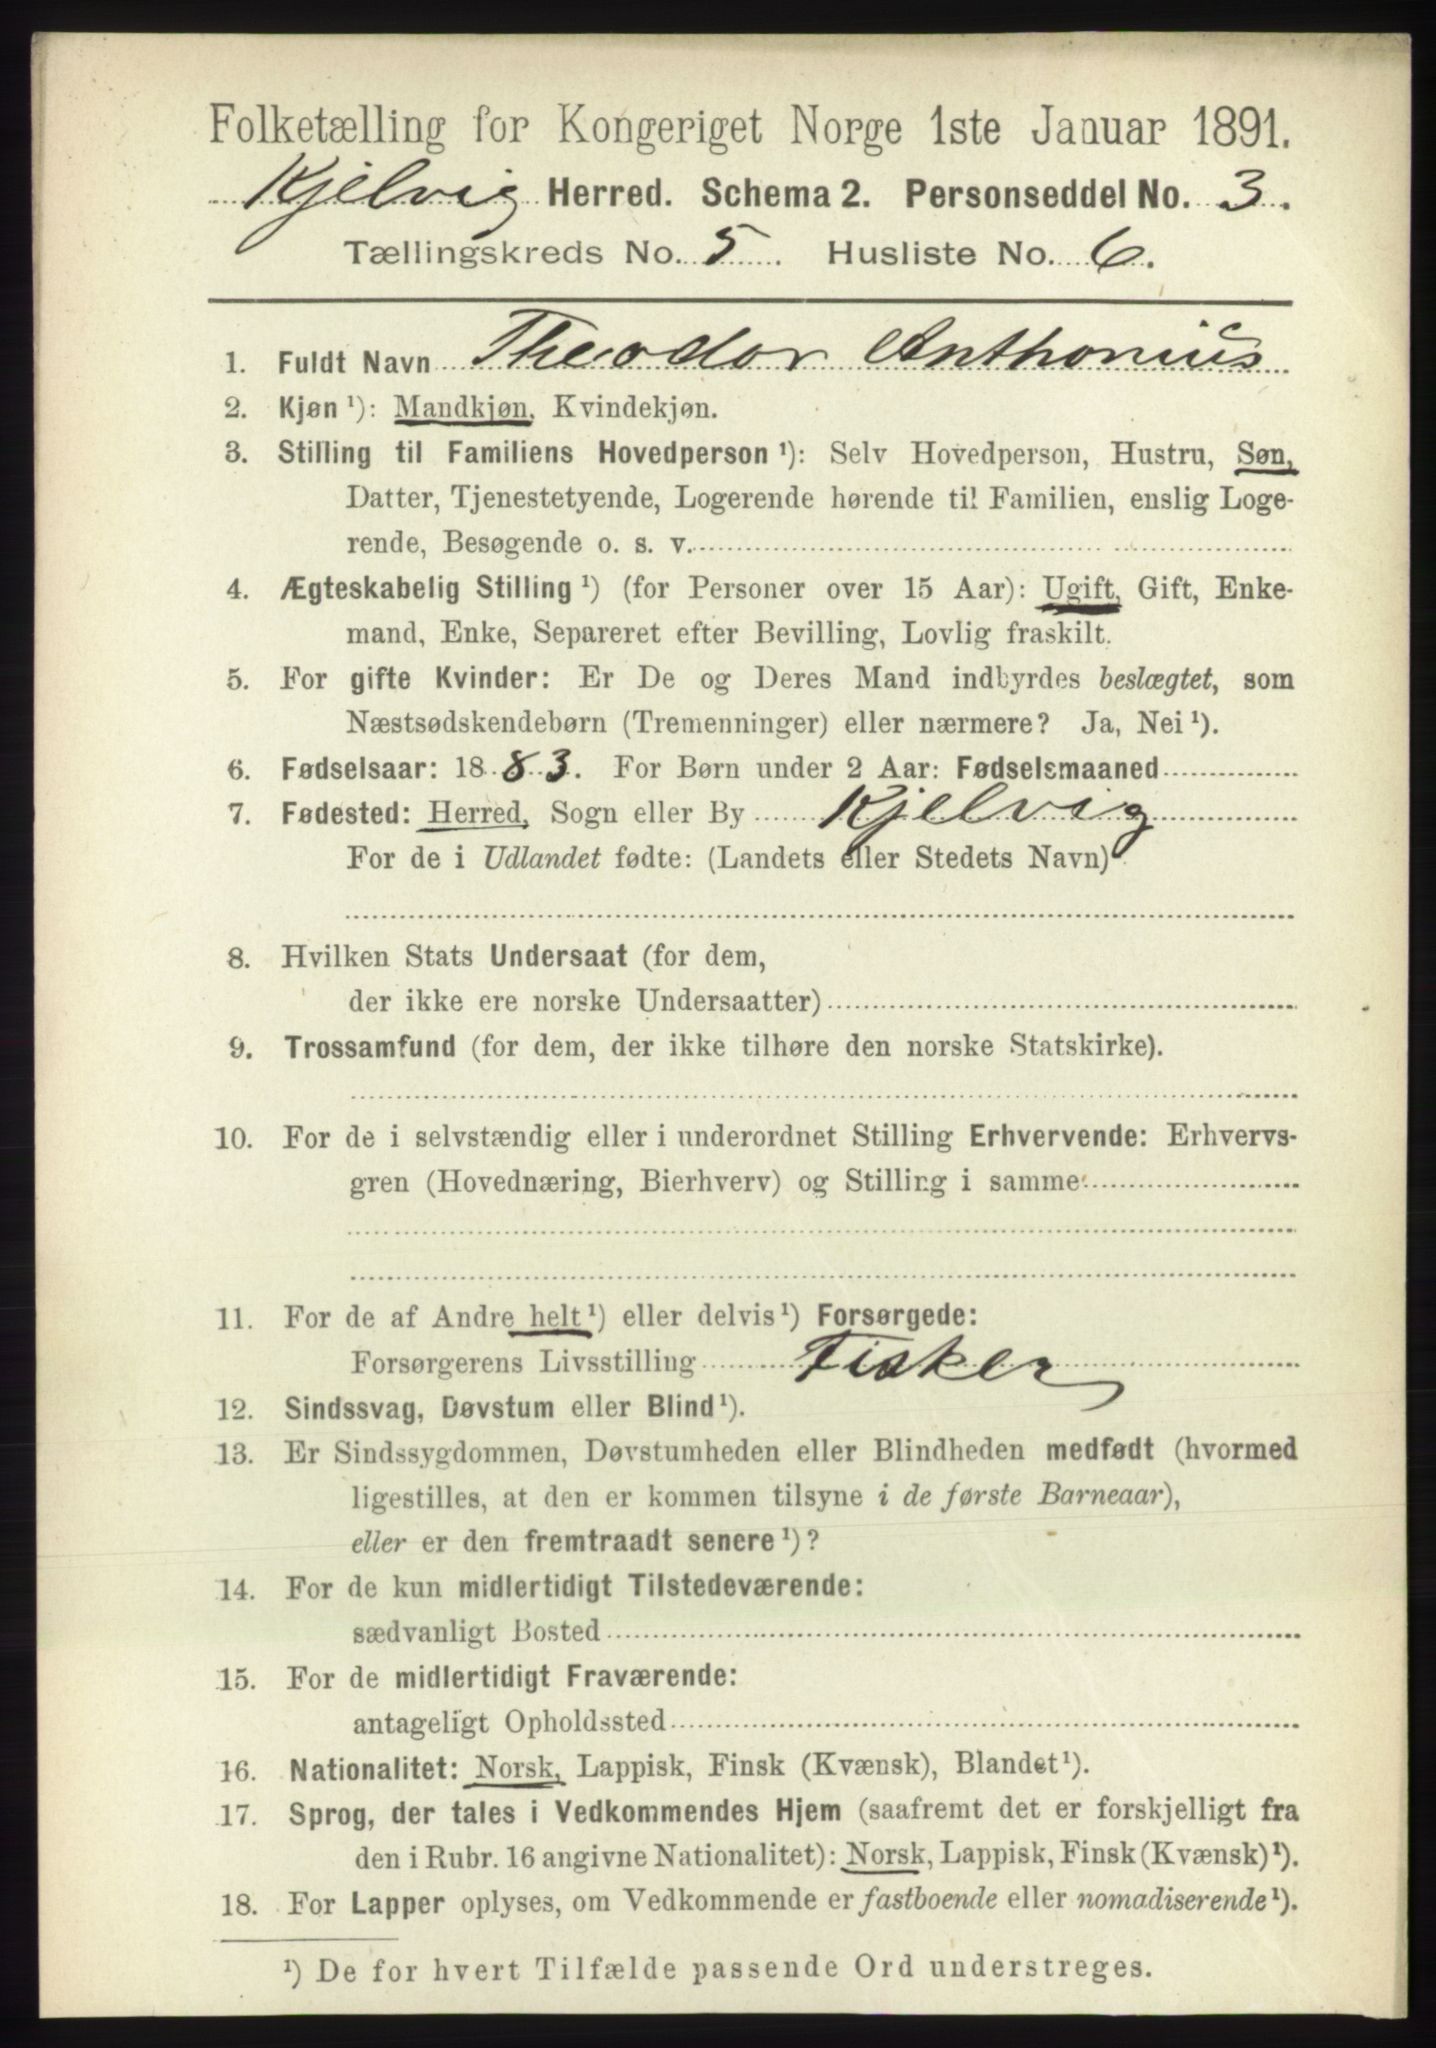 Folketælling for Kongeriget Norge 1ste Januar 1891.
Kjelvig Herred. Schema 2. Personseddel No. 3.
Tællingskreds No. 5. Husliste No. 6.
1. Fuldt Navn Theodor Anthonius
2. Kjøn ¹): Mandkjøn, Kvindekjøn.
3. Stilling til Familiens Hovedperson ¹): Selv Hovedperson, Hustru, Søn,
Datter, Tjenestetyende, Logerende hørende til Familien, enslig Loge-
rende, Besøgende o. s. v.
4. Ægteskabelig Stilling ¹) (for Personer over 15 Aar): Ugift, Gift, Enke-
mand, Enke, Separeret efter Bevilling, Lovlig fraskilt.
5. For gifte Kvinder: Er De og Deres Mand indbyrdes beslægtet, som
Næstsødskendebørn (Tremenninger) eller nærmere? Ja, Nei ¹).
6. Fødselsaar: 1883. For Børn under 2 Aar: Fødselsmaaned
7. Fødested: Herred, Sogn eller By Kjelvig
For de i Udlandet fødte: (Landets eller Stedets Navn)
8. Hvilken Stats Undersaat (for dem,
der ikke ere norske Undersaatter)
9. Trossamfund (for dem, der ikke tilhøre den norske Statskirke).
10. For de i selvstændig eller i underordnet Stilling Erhvervende: Erhvervs-
gren (Hovednæring, Bierhverv) og Stilling i samme
11. For de af Andre helt ¹) eller delvis ¹) Forsørgede:
Forsørgerens Livsstilling Fisker
12. Sindssvag, Døvstum eller Blind ¹).
13. Er Sindssygdommen, Døvstumheden eller Blindheden medfødt (hvormed
ligestilles, at den er kommen tilsyne i de første Barneaar),
eller er den fremtraadt senere ¹)?
14. For de kun midlertidigt Tilstedeværende:
sædvanligt Bosted
15. For de midlertidigt Fraværende:
antageligt Opholdssted
16. Nationalitet: Norsk, Lappisk, Finsk (Kvænsk), Blandet ¹).
17. Sprog, der tales i Vedkommendes Hjem (saafremt det er forskjelligt fra
den i Rubr. 16 angivne Nationalitet): Norsk, Lappisk, Finsk (Kvænsk) ¹).
18. For Lapper oplyses, om Vedkommende er fastboende eller nomadiserende ¹).
¹) De for hvert Tilfælde passende Ord understreges.